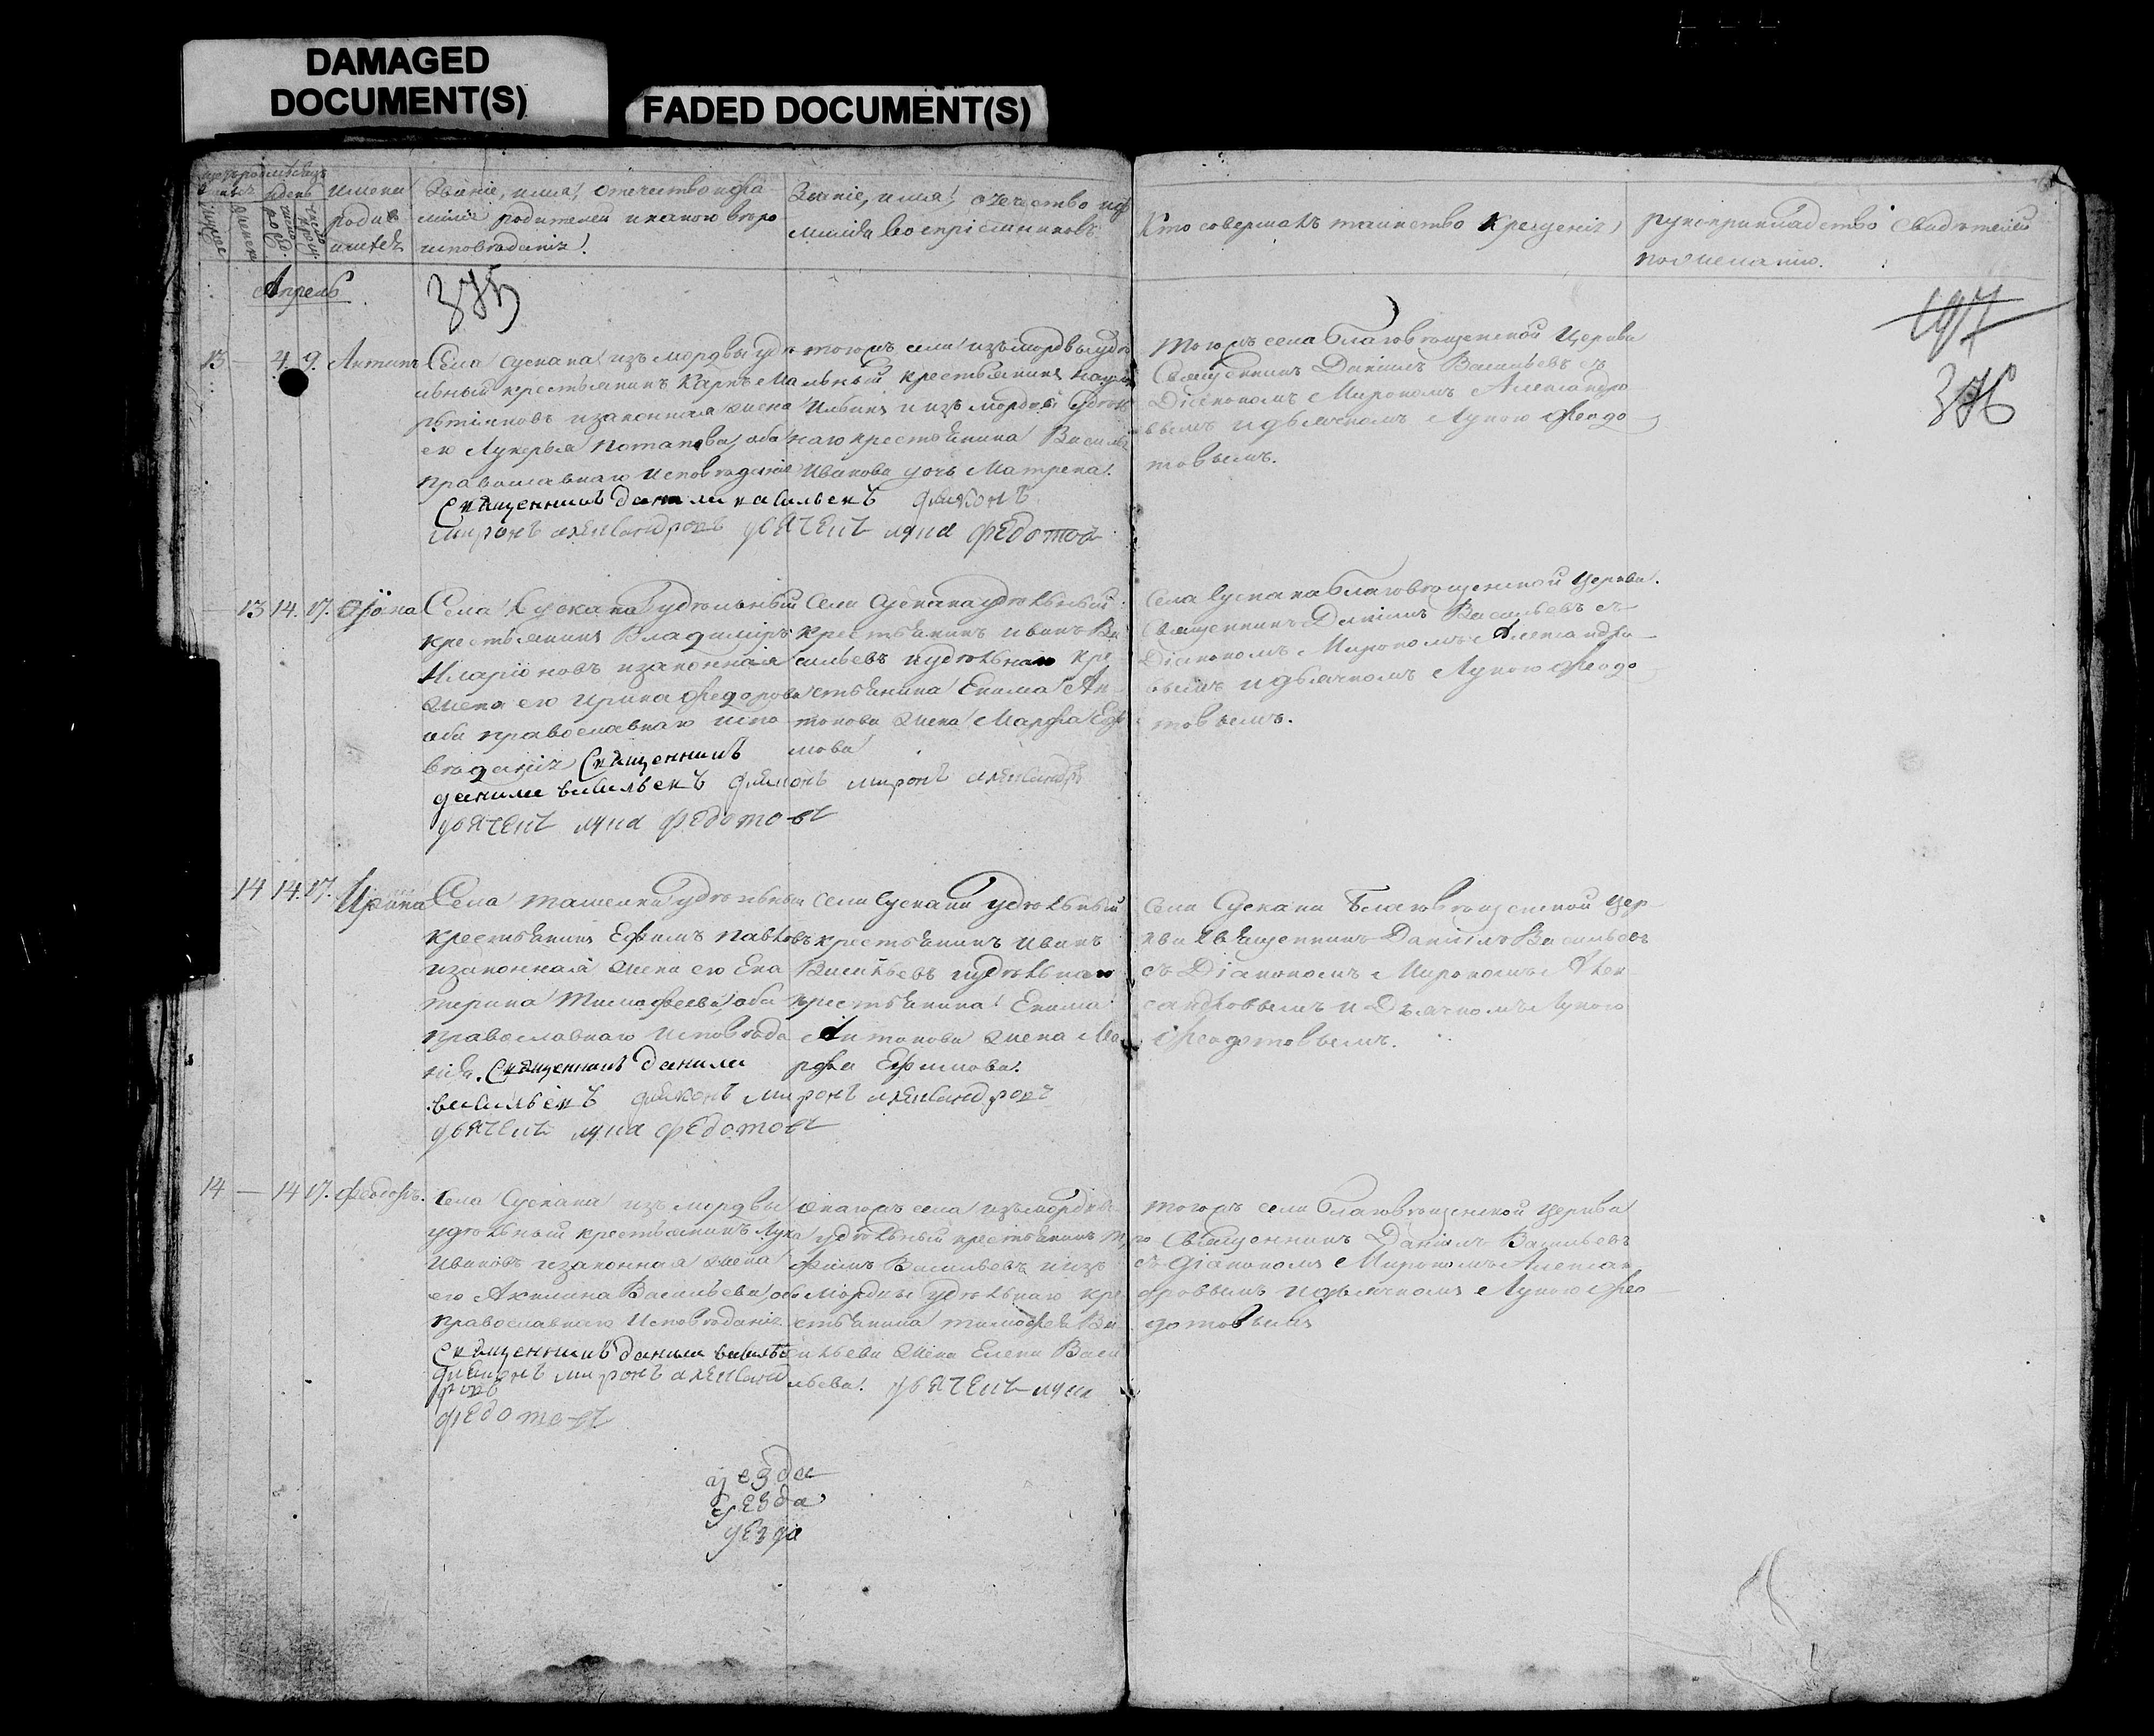 DAMAGED
DOCUMENT(S)
FADED DOCUMENT(S)
имена
родив
шихся
Званіе, имя, отечество и фа
миліи родителей и какого вѣро
исповѣданія.
Званіе, имя, отечество и ф
миліи воспріемниковъ
Кто совершалъ таинство крещенія
рукоприкладство свидѣтелей
по желанію.
Апрель
375
197
376
13 — 4. 9. Антипъ
Села Сускана изъ мордвы удѣ
льный крестьянинъ Карпъ Ма
ртіяновъ и законная жена
его Лукерья Потапова, оба
православнаго исповѣданія
Священникъ данила васильевъ дьяконъ
миронъ александровъ дьячекъ лука федотов
того жъ села изъ мордвы удѣ
льный крестьянинъ
Ильинъ и изъ мордвы удѣль
наго крестьянина Василья
Иванова дочь Матрена.
того жъ села Благовѣщенской Церкви
Священникъ Даніилъ Васильевъ съ
Діакономъ Мирономъ Александро
вымъ и дьячкомъ Лукою Феодо
товымъ.
— 13 14. 17.
Села Сускана удѣльный
крестьянинъ Владимиръ
Иларіоновъ и законная
жена его Ирина Федорова
оба православнаго испо
вѣданія Священникъ
данила васильевъ дьяконъ миронъ александръ
дьячекъ лука федотовъ
Села Сускана удѣльный
крестьянинъ Иванъ Ва
сильевъ и удѣльнаго кре
стьянина Екима Ан
тонова жена Марфа Ефи
мова
Села Сускана Благовѣщенской Церкви.
Священникъ Даніилъ Васильевъ съ
Діакономъ Мирономъ Александро
вымъ и дьячкомъ Лукою Феодо
товымъ.
14 14. 17. Ирина
Села Ташелки удѣльный
крестьянинъ Ефимъ Павловъ
и законная жена его Ека
терина Тимофеева, оба
православнаго исповѣда
нія. Священникъ данила
васильевъ дьяконъ миронъ александровъ
дьячекъ лука федотовъ
села Сускана удѣльный
крестьянинъ Иванъ
Васильевъ и удѣльнаго
крестьянина Екима
Антонова жена Ма
рфа Ефимова.
Села Сускана Благовѣщенской Цер
кви Священникъ Даніилъ Васильевъ
съ Діакономъ Мирономъ Алек
сандровымъ и Дьячкомъ Лукою
Феодотовымъ.
14 — 14 17. Феодоръ.
Села Сускана изъ мордвы
удѣльный крестьянинъ Лука
Ивановъ и законная жена
его Акилина Васильева, оба
православнаго исповѣданія
Священникъ данила василье
дьяконъ миронъ александ
ровъ
федотовъ
онаго жъ села изъ мордвы
удѣльный крестьянинъ
Васильевъ и изъ
мордвы удѣльнаго кре
стьянина Тимофея Ва
сильева жена Елена Васи
льева. дьячекъ лука
того жъ села Благовѣщенской Церкви
Священникъ Даніилъ Васильевъ
съ Діакономъ Мирономъ Алексан
дровымъ и дьячкомъ Лукою Фео
дотовымъ
уезда
уезда
уезда